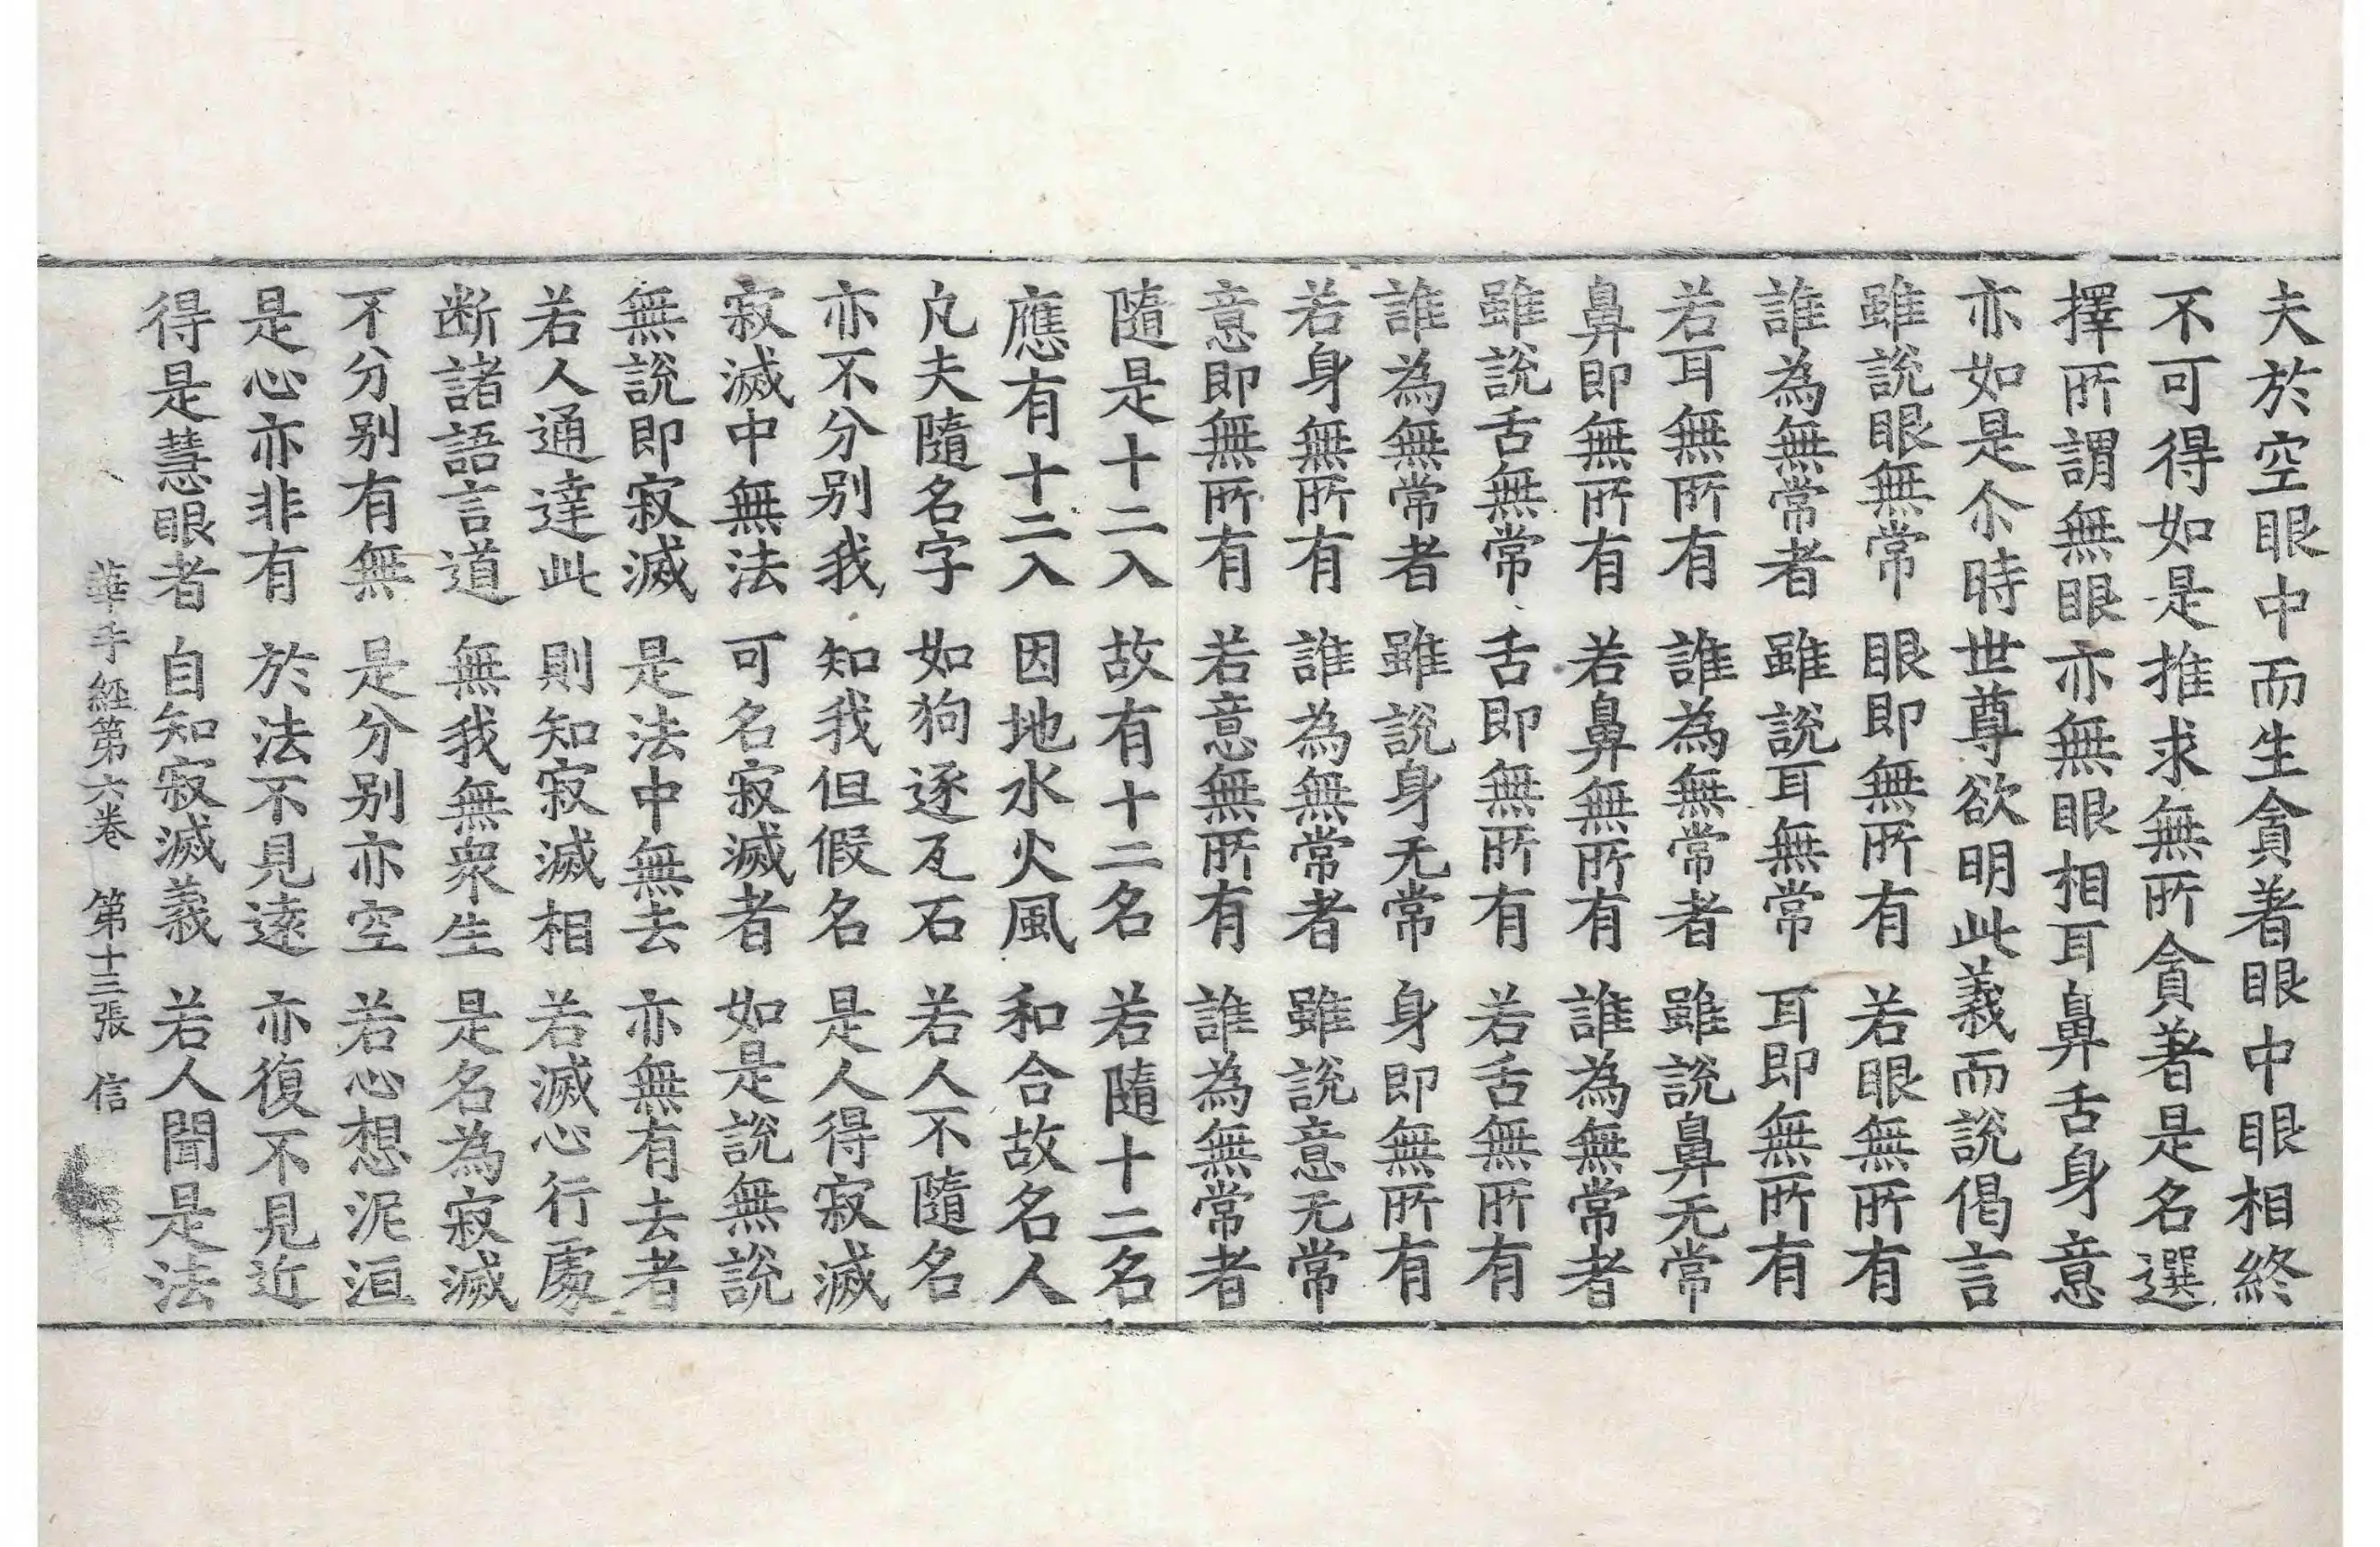 夫於空眼中而生貪著眼中眼相終
不可得如是推求無所貪著是名選
擇所謂無眼亦無眼相耳鼻舌身意
亦如是尒時世尊欲明此義而說偈言
雖說眼無常　眼即無所有　若眼無所有
誰為無常者　雖說耳無常　耳即無所有
若耳無所有　誰為無常者　雖說鼻无常
鼻即無所有　若鼻無所有　誰為無常者
雖說舌無常　舌即無所有　若舌無所有
誰為無常者　雖說身无常　身即無所有
若身無所有　誰為無常者　雖說意无常
意即無所有　若意無所有　誰為無常者
隨是十二入　故有十二名　若隨十二名
應有十二入　因地水火風　和合故名人
凡夫隨名字　如狗逐瓦石　若人不隨名
亦不分別我　知我但假名　是人得寂滅
寂滅中無法　可名寂滅者　如是說無說
無說即寂滅　是法中無去　亦無有去者
若人通達此　則知寂滅相　若滅心行處
断諸語言道　無我無衆生　是名為寂滅
不分別有無　是分別亦空　若心想泥洹
是心亦非有　於法不見遠　亦復不見近
得是慧眼者　自知寂滅義　若人聞是法
華手經第六卷　第十三張　信